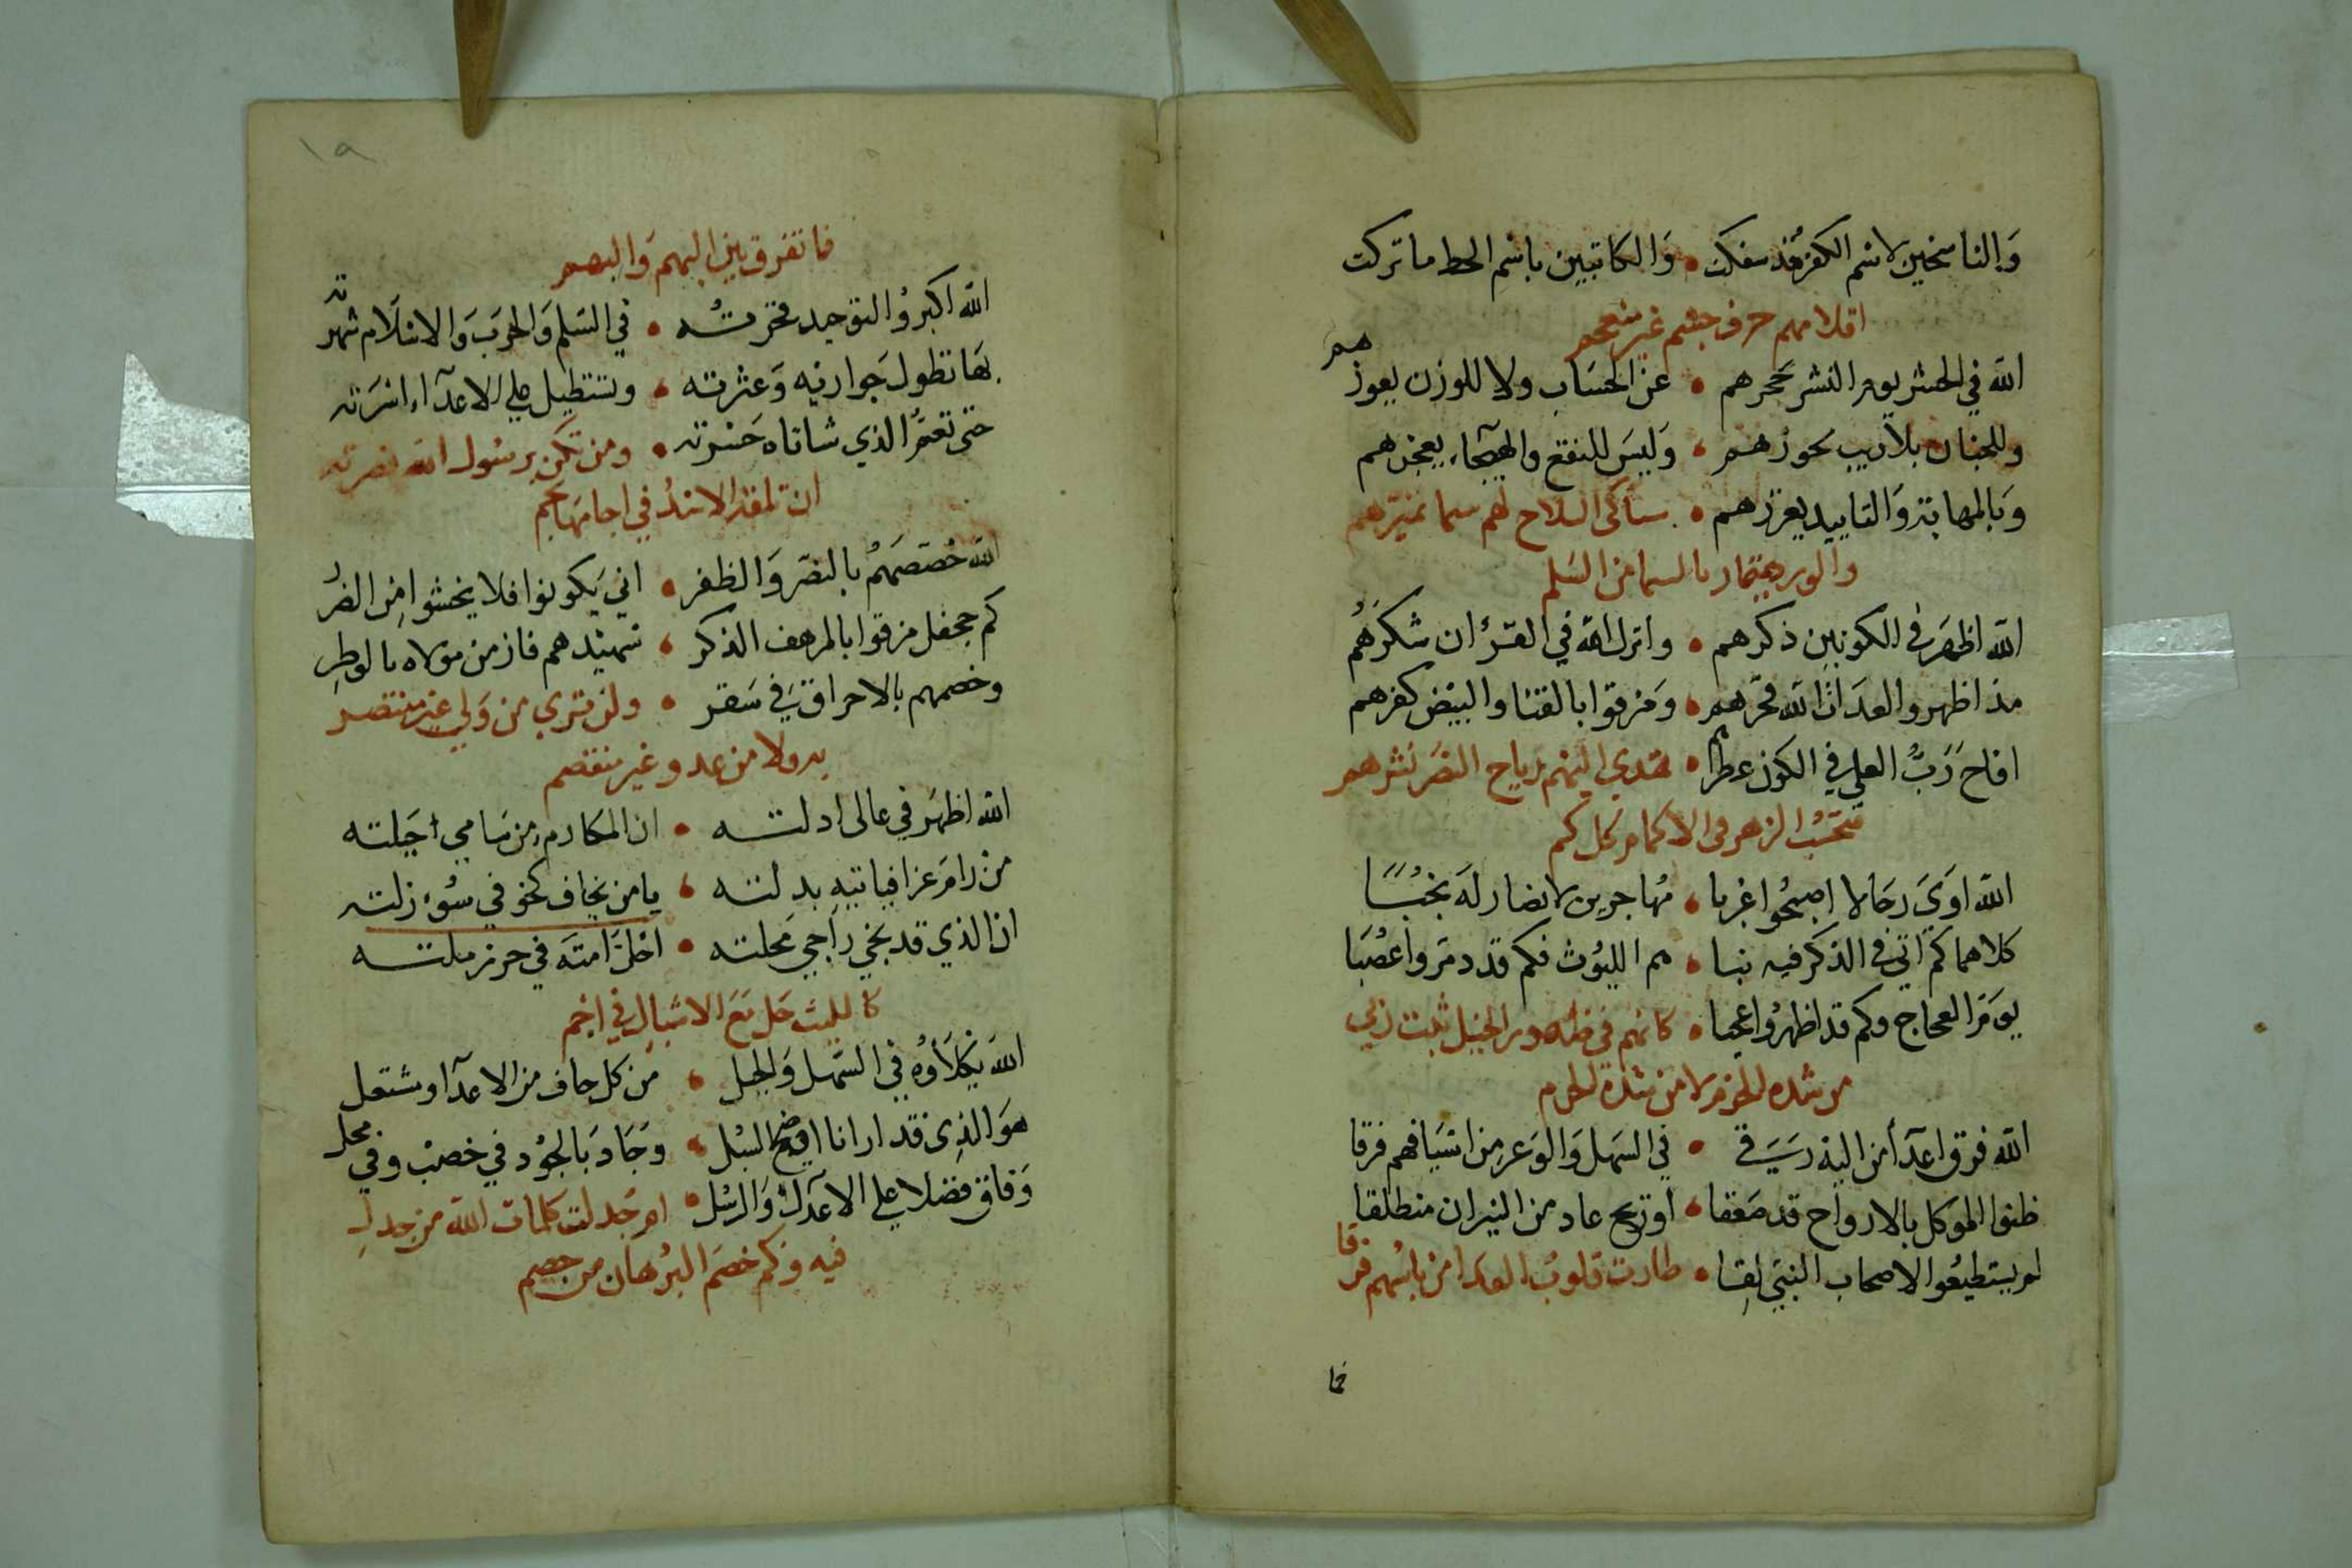 والناسخين لاسم الكفر قد سفكت • والكاتبين باسم الخط ما تركت
اقلامهم حرف جسم غير منعجم
الله في الحشر يوم النشر يحجرهم • عن الحساب ولا للوزن يعوزهم
وللجنان بلا ريب يحوزهم • وليس للنقع والهيجاء يعجزهم
وبالمهابة والتاييد يعززهم • ساكى السلاح لهم سما تميزهم
والورد يمتاز بالسيما من السلم
الله اظهر في الكونين ذكرهم • وانزل الله في القرءان شكرهم
مذ اظهروا لعدات الله فخرهم • ومزقوا بالقنا والبيض كفرهم
افاح رب العلي في الكون عطرهم • تهدي اليهم رياح النصر نشرهم
فتحسب الزهر في الاكمام كل كم
الله اوى رجالا اصبحوا غربا • مهاجرين لانصار له نجبًا
كلاهما كم اتى في الذكر فيه نبا • هم الليوث فكم قد دمروا عصبا
يوم العجاج وكم قد اظهروا عجبا • كانهم في ظهور الخيل نبت ربي
من شدة الحزم لا من شدة الحزم
الله فرق اعدآ من اليه رسَقى • في السهل والوعر من اسيافهم فرقا
ظنوا الموكل بالارواح قد صعقا • او ريح عاد من النيران منطلقا
لم يستطيعوا لاصحاب النبي لقا • طارت قلوب العدا من باسهم فرقا
فما
١٩
فما تفرق بين البهم والبهم
الله اكبر والتوحيد فخرته • في السلم والحرب والاسلام شهرته
بها تطول جواريه وعثرته • وتستطيل على الاعدآء اسرته
حتى تعم الذي شاناه حسرته • ومن تكن برسول الله نصرته
ان تلقه الاسد في اجامها تجم
الله خصصهم بالنصر والظفر • اني يكونوا فلا يخشوا من الضر
كم جحفل مزقوا بالمرهف الذكر • شهيدهم فاز من مولاه بالوطر
وخصمهم بالاحراق في سقر • ولن ترى من ولي غير منتصر
به ولا من عدو غير منقصم
الله اظهر في عالى ادلته • ان المكارم من سامي اجلته
من رام عزا فياتيه بدلته • يا من يخاف كخوفي سوء زلته
ان الذي قد نجي راجي محلته • احل امته في حرز ملته
كالليث حل مع الاشبال في اجم
الله يكلأوه في السهل والجبل • من كل جاف من الاعدآ ومشتعل
هو الذي قد ارانا اوضح السبل • وجاد بالجود في خصب وفي محل
وفاق فضلا على الاعدآ والرسل • كم جدلت كلمات الله من جدل
فيه وكم خصم البرهان من خصم